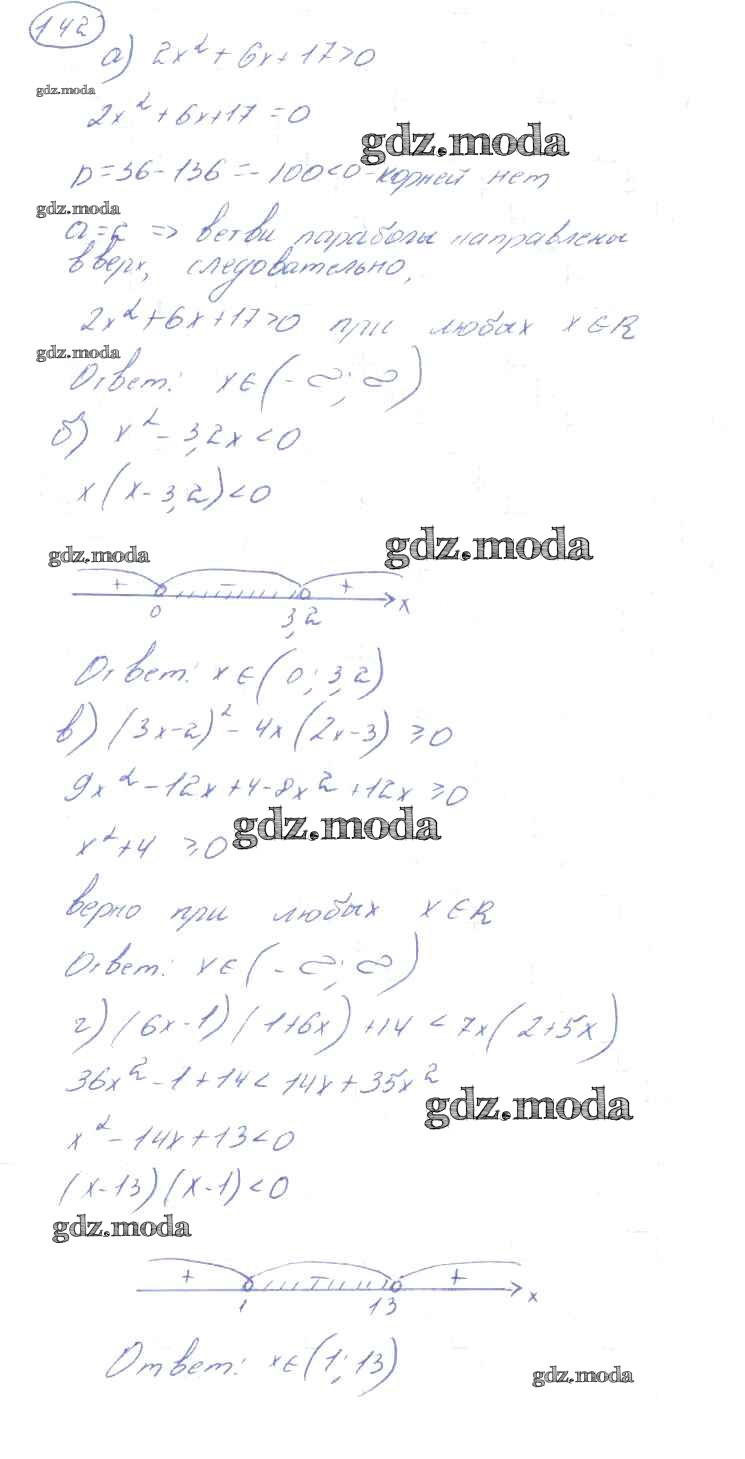 142
а) 2x² + 6x + 17 > 0
gdz.moda
2x² + 6x + 17 = 0
gdz.moda
D = 36 - 136 = -100 < 0 - корней нет
gdz.moda
a = 2 => ветви параболы направлены
вверх, следовательно,
2x² + 6x + 17 > 0 при любых x ∈ R
gdz.moda
Ответ: x ∈ (-∞; ∞)
б) x² - 3,2x < 0
x(x - 3,2) < 0
gdz.moda gdz.moda
+ - +
0 3,2 x
Ответ: x ∈ (0; 3,2)
в) (3x-2)² - 4x(2x-3) ≥ 0
9x² - 12x + 4 - 8x² + 12x ≥ 0
gdz.moda
x² + 4 ≥ 0
верно при любых x ∈ R
Ответ: x ∈ (-∞; ∞)
г) (6x-1)(1+6x) + 14 < 7x(2+5x)
36x² - 1 + 14 < 14x + 35x²
gdz.moda
x² - 14x + 13 < 0
(x-13)(x-1) < 0
gdz.moda
+ - +
1 13 x
Ответ: x ∈ (1; 13)
gdz.moda